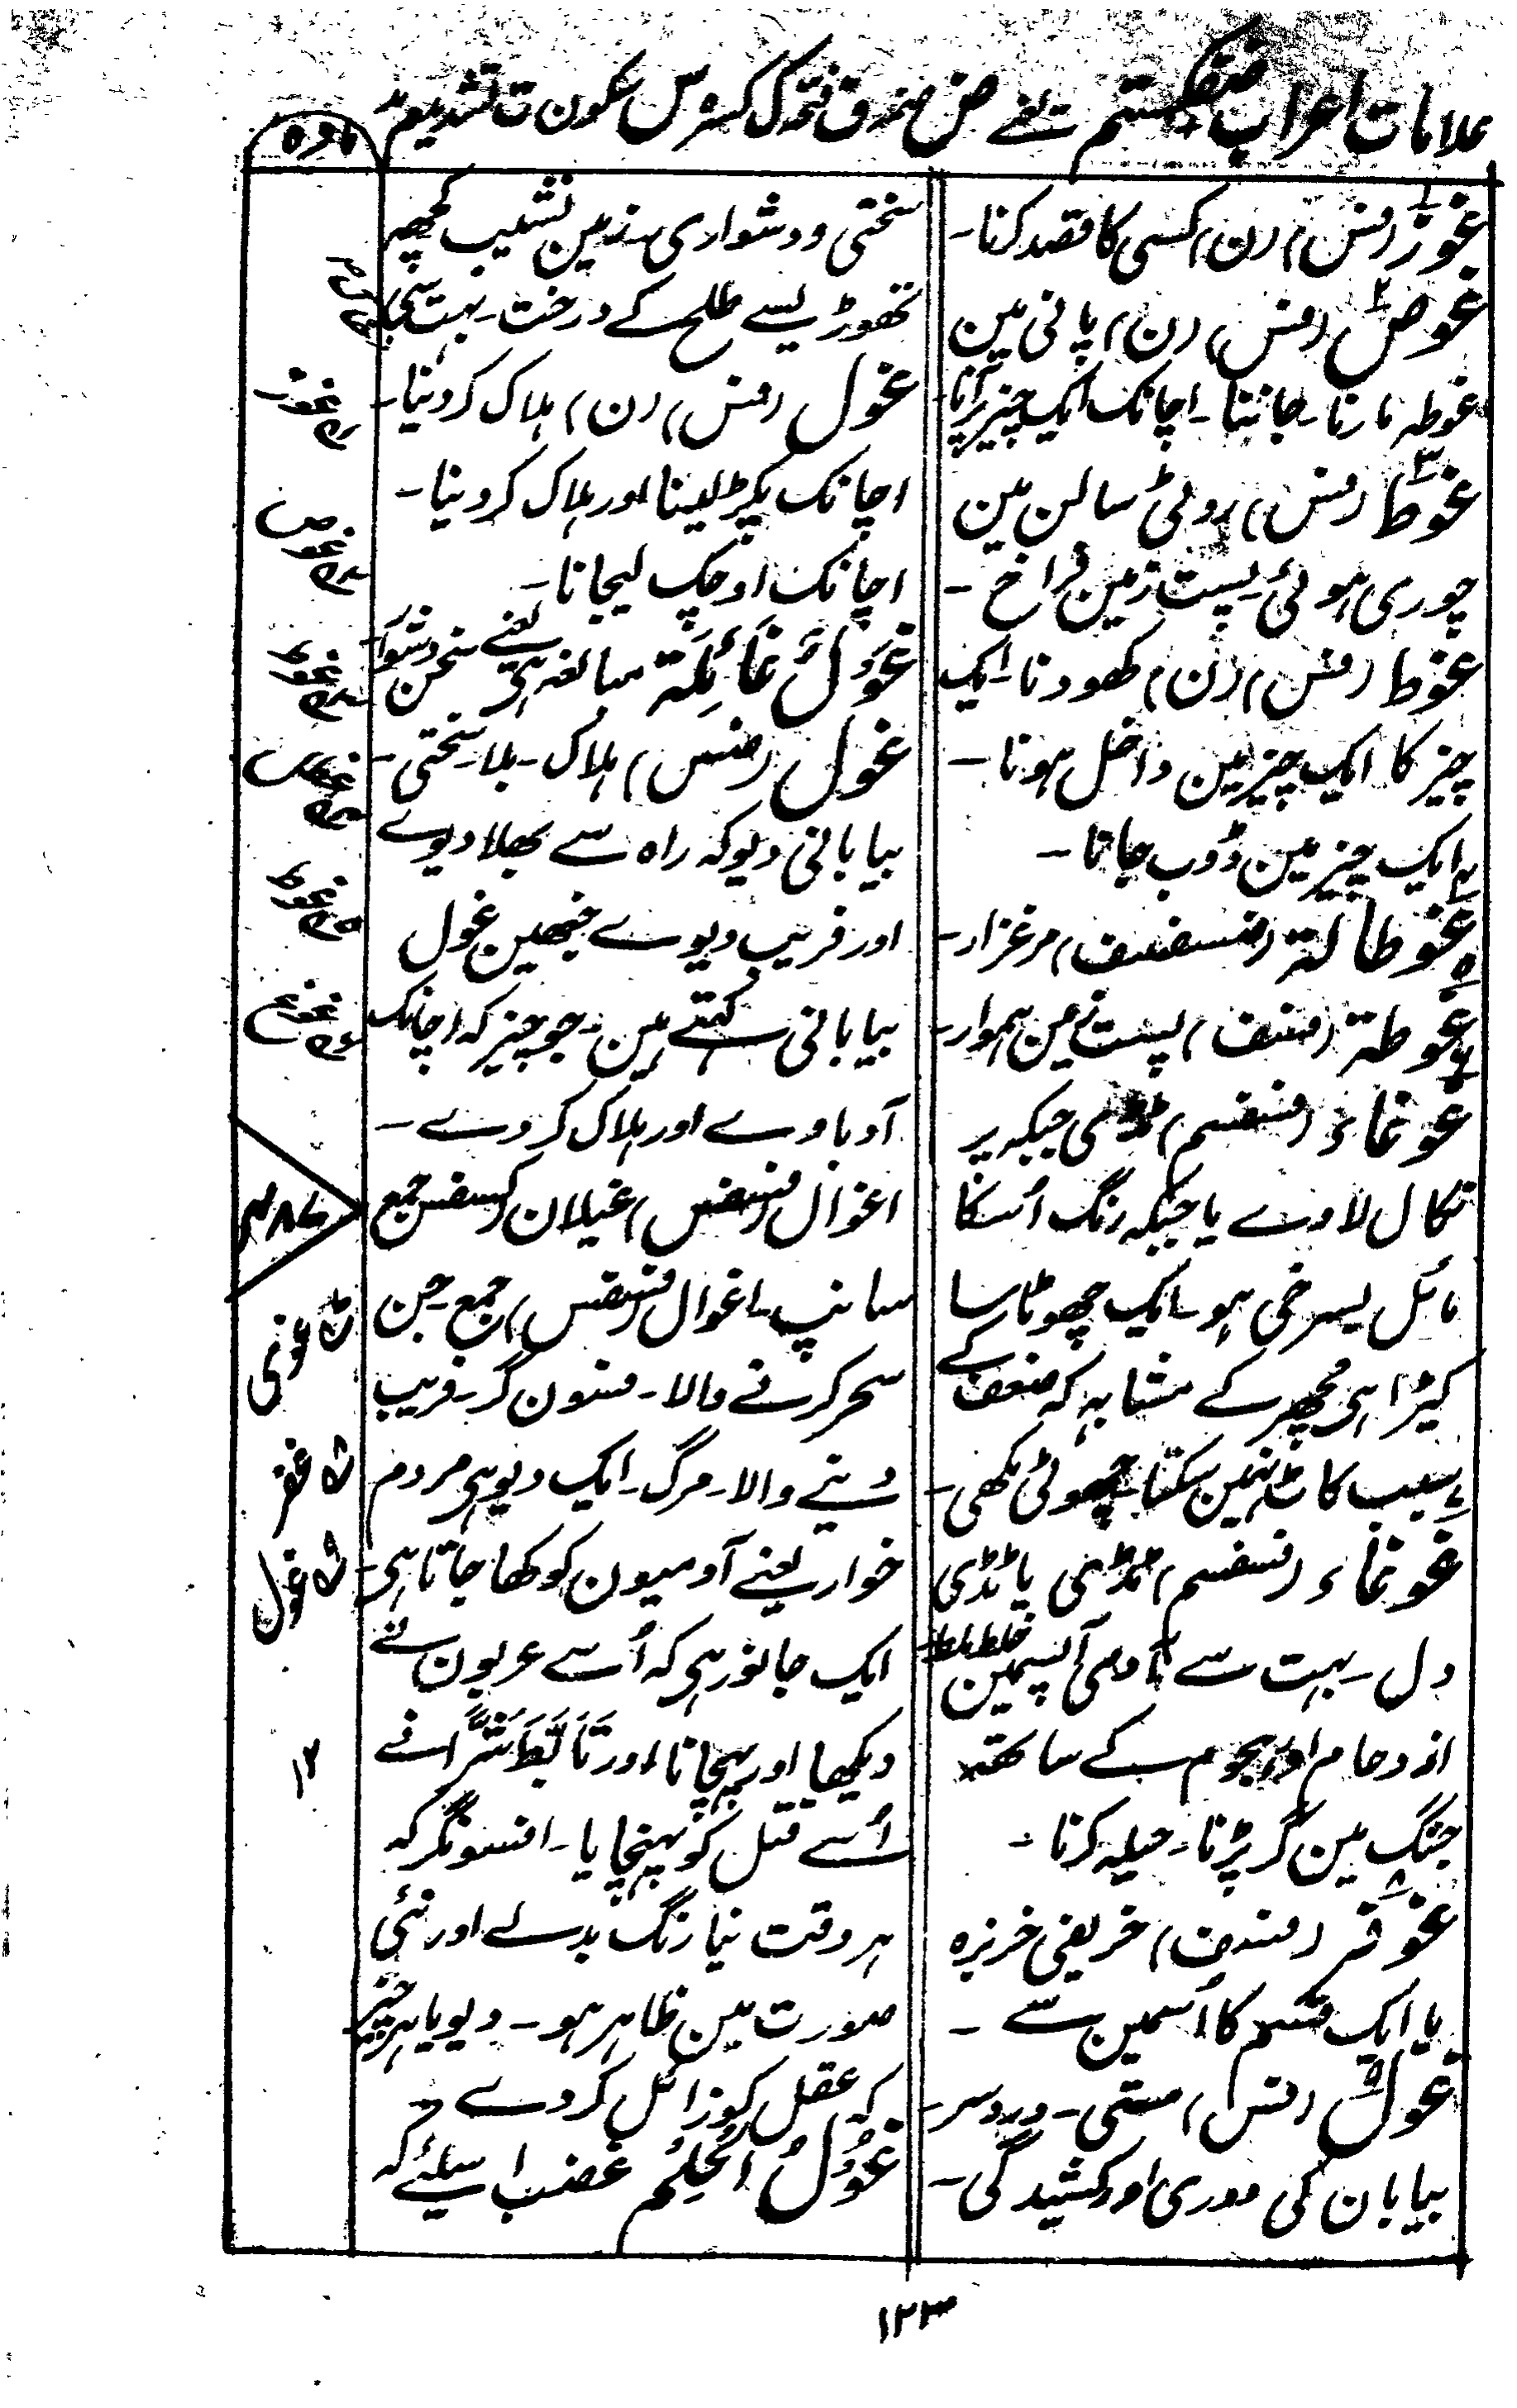 علامات اعراب ضفکستم یعنے ض ضمہ ف فتحہ ک کسرہ س سکون ت تشدید م مد
مادہ
غَوْز (فس) (ن) کسی کا قصد کرنا۔
غوص (فس) (ن) پانی مین
غوطہ مارنا۔ جاننا۔ اچانک ایک چیز پر آنا
غوط (فس) روٹی سالن مین
چوری ہوئی۔ پست زمین فراخ۔
غوط (فس) (ن) کھودنا۔ ایک
چیز کا ایک چیز مین داخل ہونا۔
ایک چیز مین ڈوب جانا۔
غوطالۃ مرغزار۔
غوطۃ (ضسف) پست زمین ہموار۔
غوغاء (فسفسم) ٹڈی جبکہ پر
نکال لاوے یا جبکہ رنگ اُسکا
مائل بسرخی ہو۔ ایک چھوٹا سا
کیڑا ہی مچھر کے مشابہ کہ ضعف کے
سبب کاٹ نہین سکتا۔ چھوٹی مکھی۔
غوغاء (فسفسم) ٹڈی یا ٹڈی
دل۔ بہت سے آدمی آپسمین خلط ملط
ازدحام اور ہجوم کے ساتھ
جنگ مین گر پڑنا۔ حیلہ کرنا۔
غوفر خریفی خربزہ
یا ایک قسم کا اُسمین سے۔
غول (فس) مستی۔ درد سر۔
بیابان کی دوری اور کشیدگی۔
سختی و دشواری۔ زمین نشیب کچھ
تھوڑیسے طلح کے درخت۔ بہت سی
غول (فس) (ن) ہلاک کر دینا۔
اچانک پکڑ لینا اور ہلاک کر دینا۔
اچانک اوچک لیجانا۔
غَوْلٌ غَائِلَۃ مبالغہ ہی یعنے سخن دشوار
غول (ضس) ہلاک۔ بلا۔ سختی۔
بیابانی دیو کہ راہ سے بھلا دیوے
اور فریب دیوے جنھین غول
بیابانی کہتے ہین۔ جو چیز کہ اچانک
آ دباوے اور ہلاک کر دے۔
اغوال (فسفس) غیلان (کسفس) جمع
سانپ۔ اغوال (فسفس) جمع۔ جن
سحر کرنے والا۔ فسون گر۔ فریب
دینے والا۔ مرگ۔ ایک دیو ہی مردم
خوار یعنے آدمیون کو کھا جاتا ہی۔
ایک جانور ہی کہ اُسے عربون نے
دیکھا اور پہچانا اور تَاَبَّطَ شَرًّا نے
اُسے قتل کو پہنچایا۔ افسونگر کہ
ہر وقت نیا رنگ بدلے اور نئی
صورت مین ظاہر ہو۔ دیو یا ہر چیز
کہ عقل کو زائل کر دے۔
غُوْلُ الْحِلْم غضب اسلئے کہ
غوص
غوط
غوغی
غفر
غول
۱۲
۱۲۳